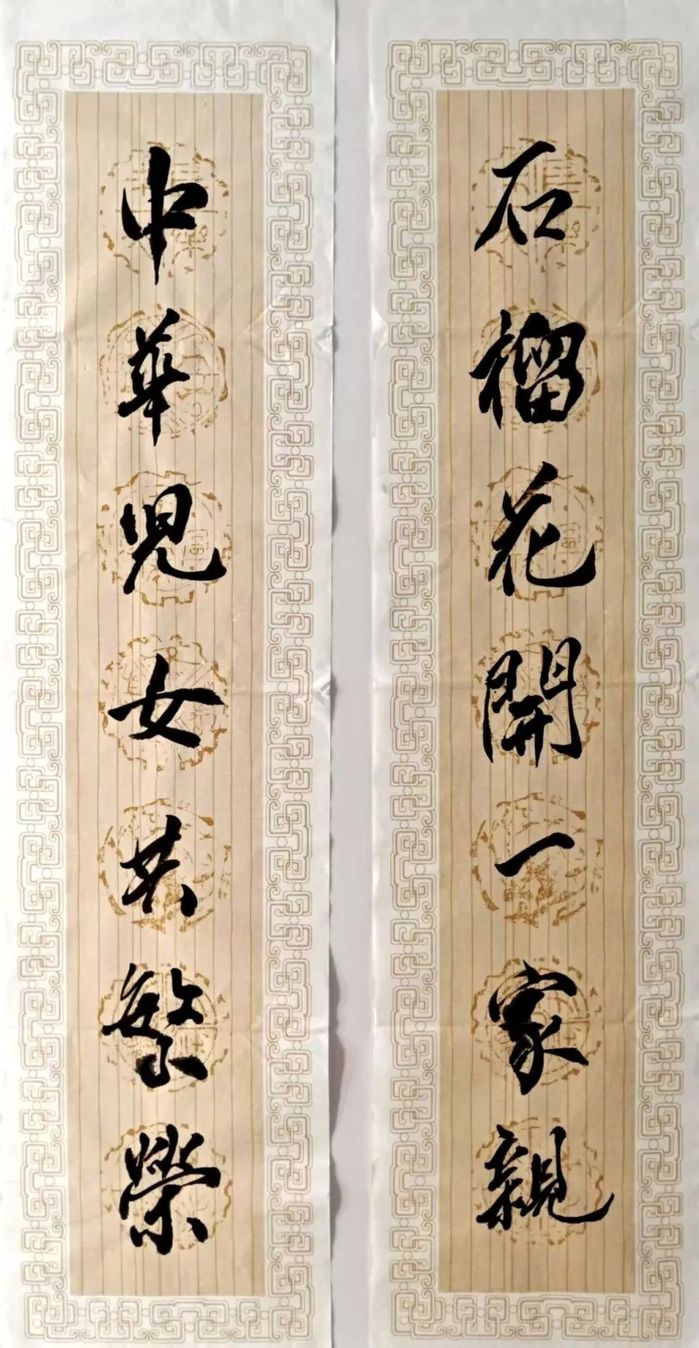 石榴花開一家親
中華兒女共繁榮